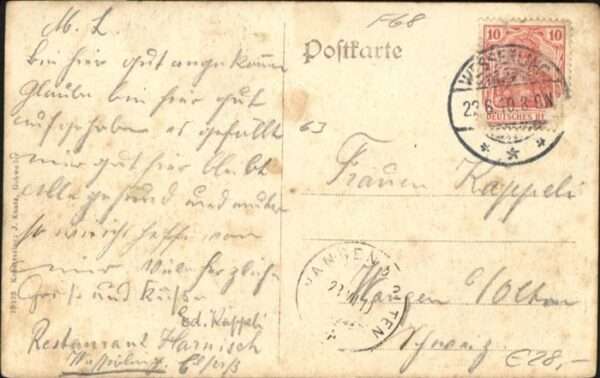 M. L.
Bin hier gut angekommen
Glaube bin hier gut
aufgehoben es gefällt
mir gut hier bleibt
alle gesund und munter
so wie ich hoffe von
mir Viele herzliche
Grüsse und Küsse
Ed. Käppeli
Restaurant Harnisch
Wesserling Elsass
F68
Postkarte
10 10
DEUTSCHES REICH
WESSERLING
63
Frauen Kappeli
WANGEN
OLTEN
Wangen / Olten
Schweiz
€28,-